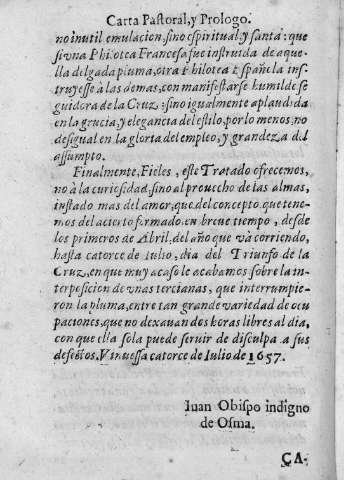 Carta Pastoral, y Prologo.
no inutil emulacion, sino espiritual, y santa: que
si vna Philotea Francesa fue instruida de aque-
lla delgada pluma, otra Philotea Española ins-
truyesse à las demas, con manifestarse humilde se-
guidora de la Cruz: sino igualmente aplaudida
en la gracia, y elegancia del estilo, por lo menos, no
desigual en la gloria del empleo, y grandeza del
assumpto.
Finalmente, Fieles, este Tratado ofrecemos,
no à la curiosidad, sino al prouecho de las almas,
instado mas del amor, que del concepto, que tene-
mos del acierto formado en breue tiempo, desde
los primeros de Abril, del año que và corriendo,
hasta catorce de Iulio, dia del Triunfo de la
Cruz, en que muy acaso le acabamos sobre la in-
terposicion de vnas tercianas, que interrumpie-
ron la pluma, entre tan grande variedad de ocu
paciones, que no dexauan dos horas libres al dia,
con que ella sola puede seruir de disculpa a sus
deseños. Vinuessa catorce de Iulio de 1657.
Iuan Obispo indigno
de Osma.
CA-